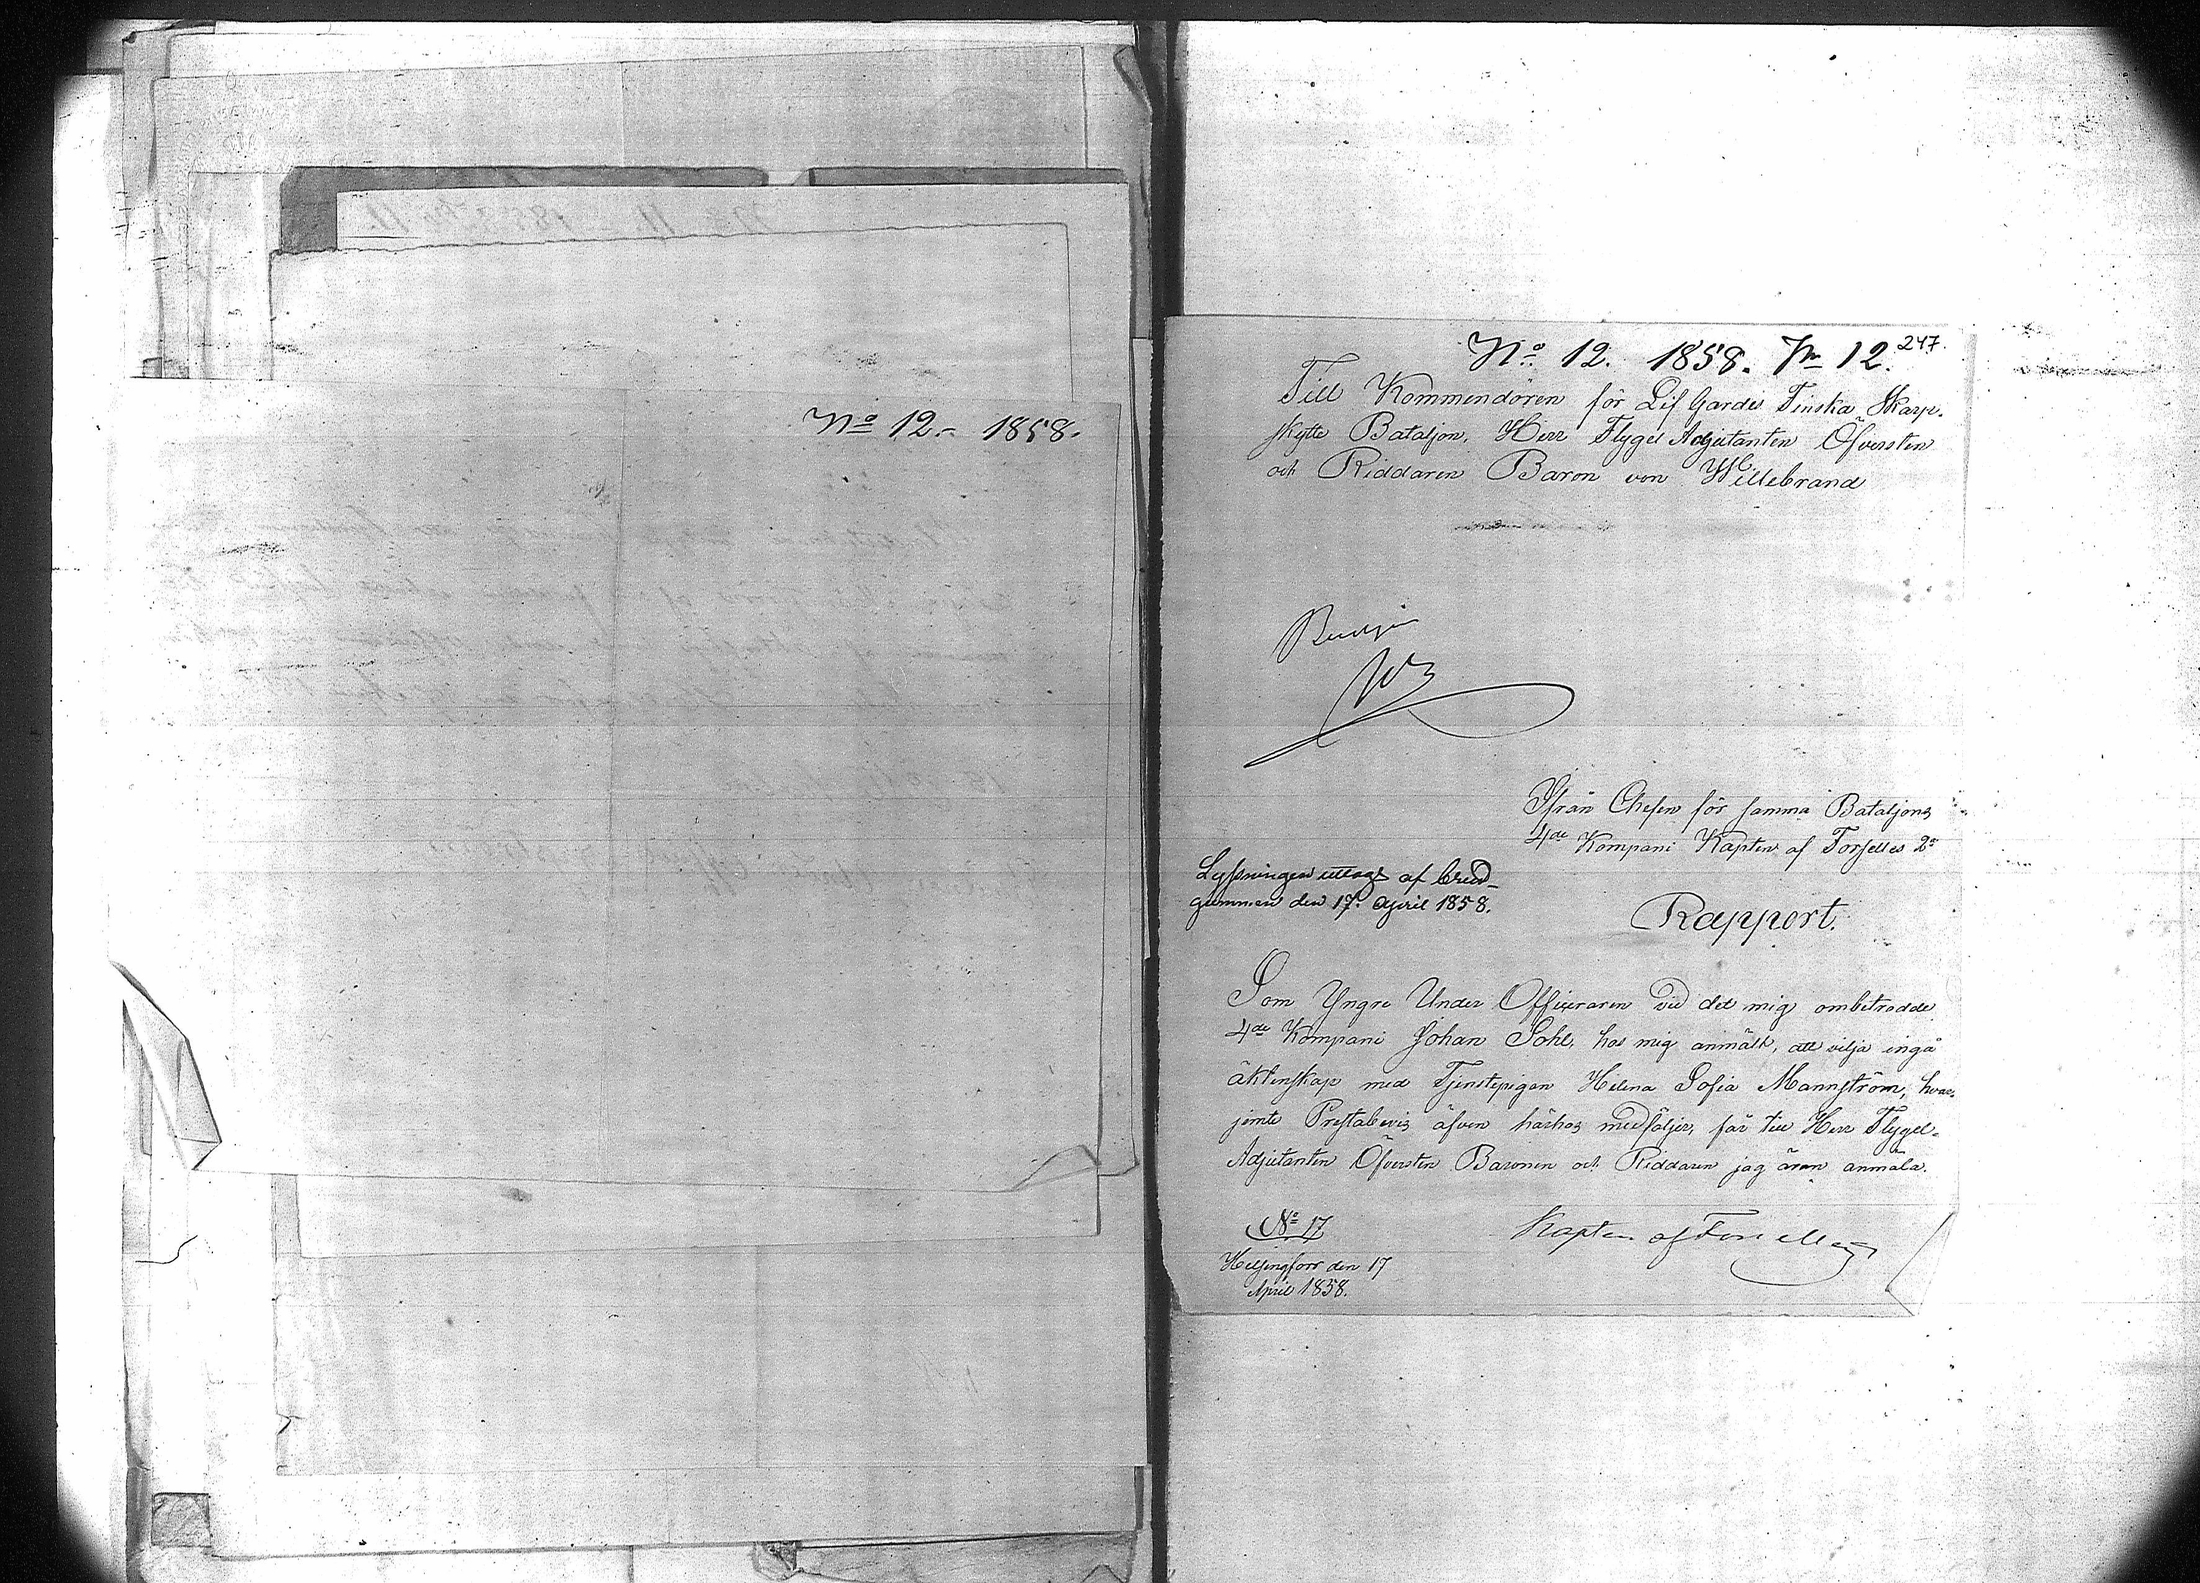 No 12. - 1858.
247.
No 12. 1858. No 12.
Till Kommendören för Lif Gardes Finska Skarp-
skytte Bataljon, Herr Flygel Adjutanten Öfversten
och Riddaren Baron von Willebrand
Ifrån Chefen för samma Bataljons
4de Kompani Kapten af Forselles 2a
Lysningen uttagd af brud-
gummen den 17. April 1858.
Rapport.
Som Yngre Under Officeraren vid det mig ombetrodde
4de Kompani Johan Sohl, hos mig anmält, att vilja ingå
äktenskap med Tjenstepigan Helena Sofia Mannström, hvar-
jemte Prestabevis äfven härhos medföljer, får till Herr Flygel-
Adjutanten Öfversten Baronen och Riddaren jag äran anmäla.
No 17
Kapten af Forselles
Helsingfors den 17
April 1858.